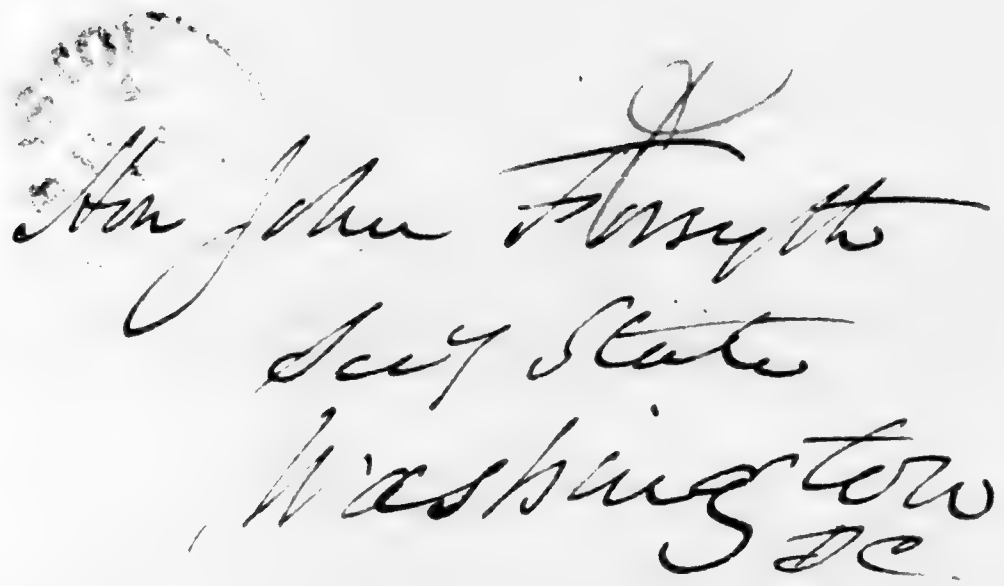 Hon John Forsyth
Secy State
Washington
DC.